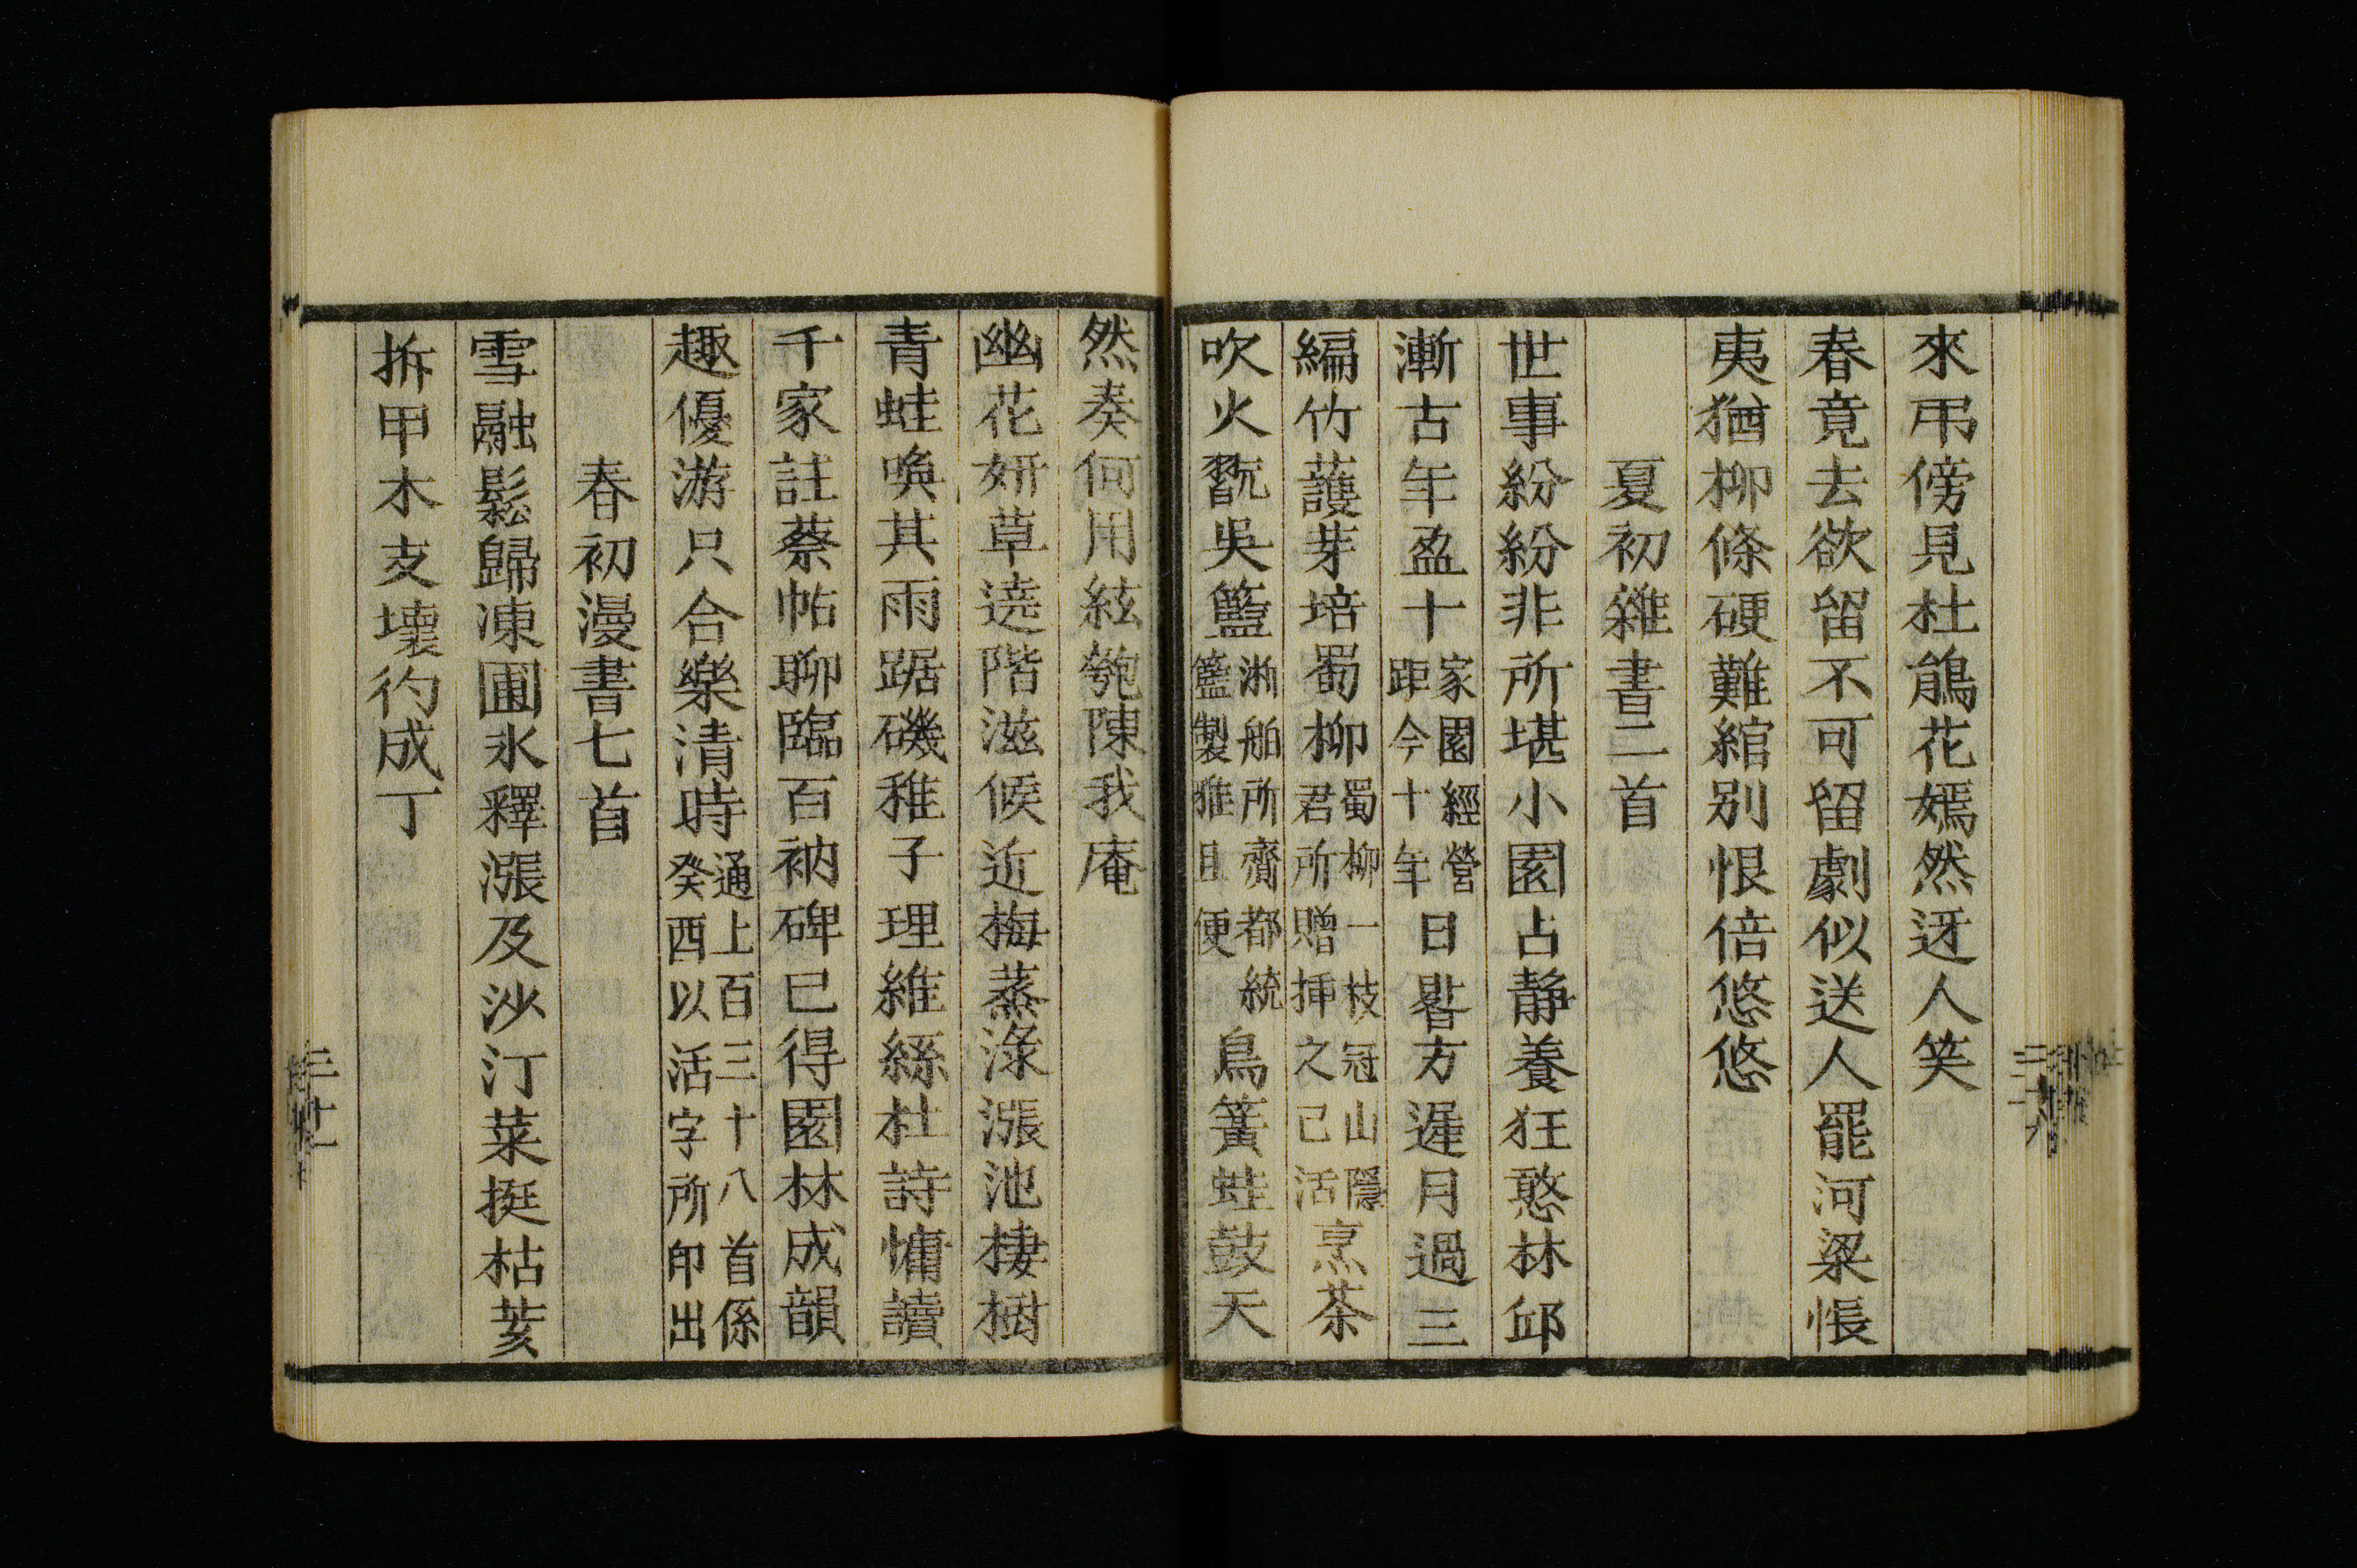 來弔傍見杜鵑花嫣然迓人笑
春竟去欲留不可留劇似送人罷河梁悵
夷猶柳條硬難綰別恨倍悠悠
夏初雜書二首
世事紛紛非所堪小園占静養狂憨林邱
漸古年盈十家園經營距今十年日晷方遲月過三
編竹䕶芽培蜀柳蜀柳一枝冠山隱君所贈揷之已活烹茶
吹火翫吳籃淞船所齎都統籃製雅且便鳥簧蛙鼓天
然奏何用絃匏陳我庵
幽花妍草遶階滋候近梅蒸淥漲池棲樹
青蛙喚其雨踞磯稚子理維絲杜詩慵讀
千家註蔡帖聊臨百衲碑已得園林成韻
趣優游只合樂清時通上百三十八首係癸酉以活字所印出
春初漫書七首
雪融鬆歸凍圃氷釋漲及沙汀菜挺枯荄
拆甲木支壞彴成丁